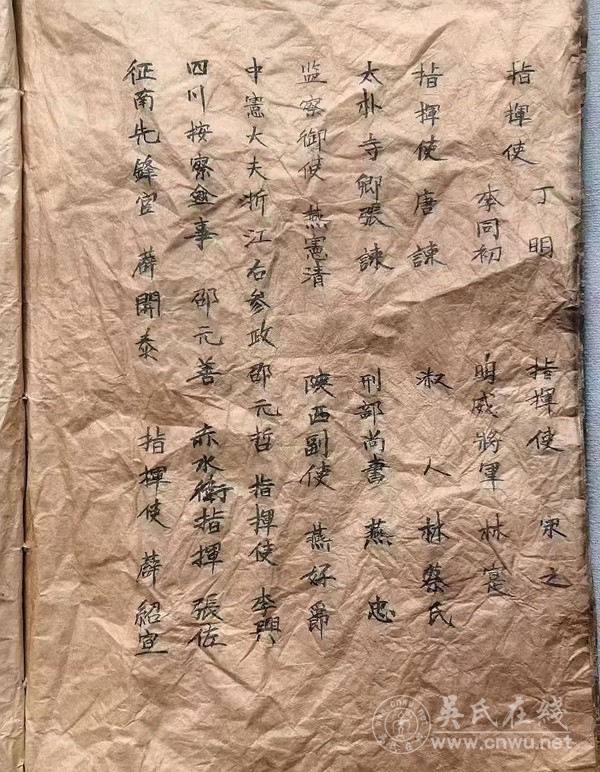 指揮使 丁明 指揮使 之
李同初 明威將軍 林寔
指揮使 唐諫 淑人 林蔡氏
太朴寺卿張諫 刑部尚書 燕忠
监察御使 燕憲清 陝西副使 燕好爵
中憲大夫折江右參政邵元哲 指揮使 李興
四川按察僉事 邵元善 赤水衛指揮 張佐
征南先鋒官 薛開泰 指揮使 薛紹宣
吴氏在线
www.cnwu.net